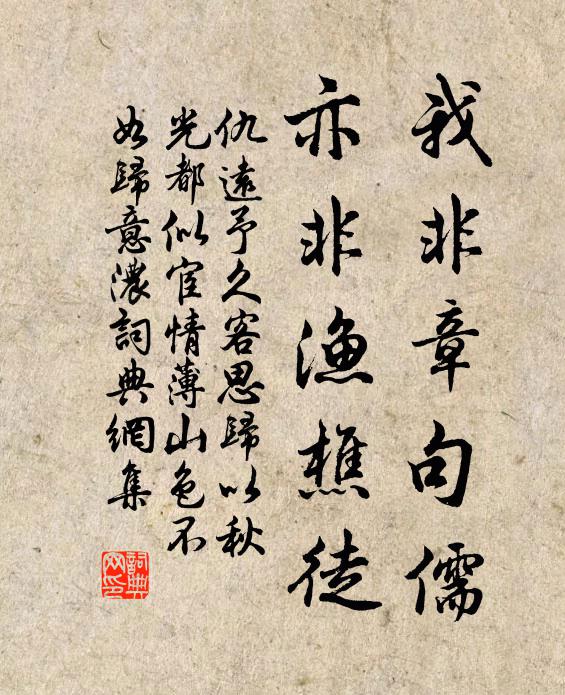 我非章句儒
亦非漁樵徒
仇遠予久客思歸以秋
光都似宦情薄山色不
如歸意濃詞典網集
詞典
网印